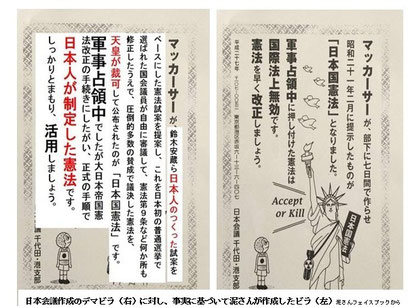 マッカーサーが、部下に七日間で作らせ
昭和二十一年二月に提示したものが
「日本国憲法」となりました。
Accept
or Kill
日本国憲法
軍事占領中に押し付けた憲法は
国際法上無効です。
憲法を早く改正しましょう。
平成二十七年
日本会議 千代田・港支部
マッカーサーが、鈴木安蔵ら日本人のつくった試案を
ベースにした憲法試案を提案し、これを日本初の普通選挙で
選ばれた国会議員が自由に審議して、憲法第9条など何か所も
修正したうえで、圧倒的多数の賛成で議決した憲法を、
天皇が裁可して公布されたのが「日本国憲法」です。
軍事占領中でしたが大日本帝国憲
法改正の手続きにしたがい、正式の手順で
日本人が制定した憲法です。
しっかりとまもり、活用しましょう。
議 千代田・港支部
日本会議作成のデマビラ（右）に対し、事実に基づいて泥さんが作成したビラ（左）泥さんフェイスブックから